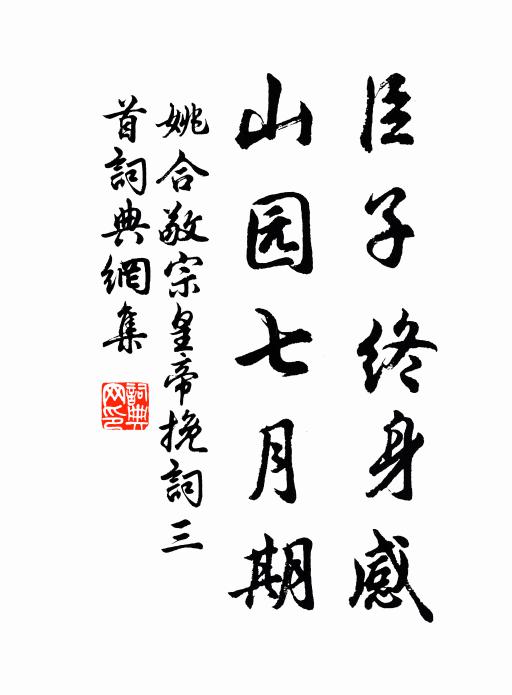 臣子终身感
山园七月期
姚合敬宗皇帝挽詞三
首詞典網集
詞典
网印